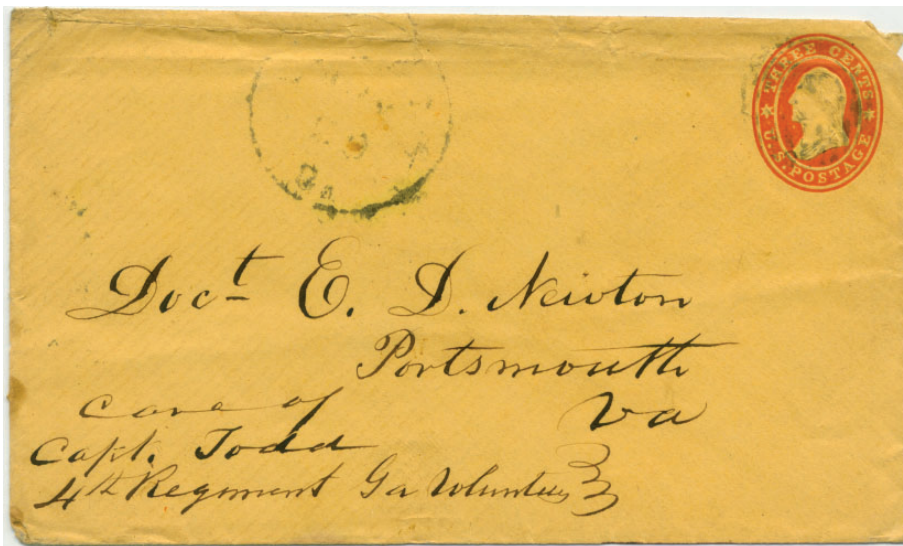 THREE CENTS
U.S. POSTAGE
GA
Doct E. D. Newton
Portsmouth
Va
care of
Capt. Todd
4th Regiment Ga Volunteers